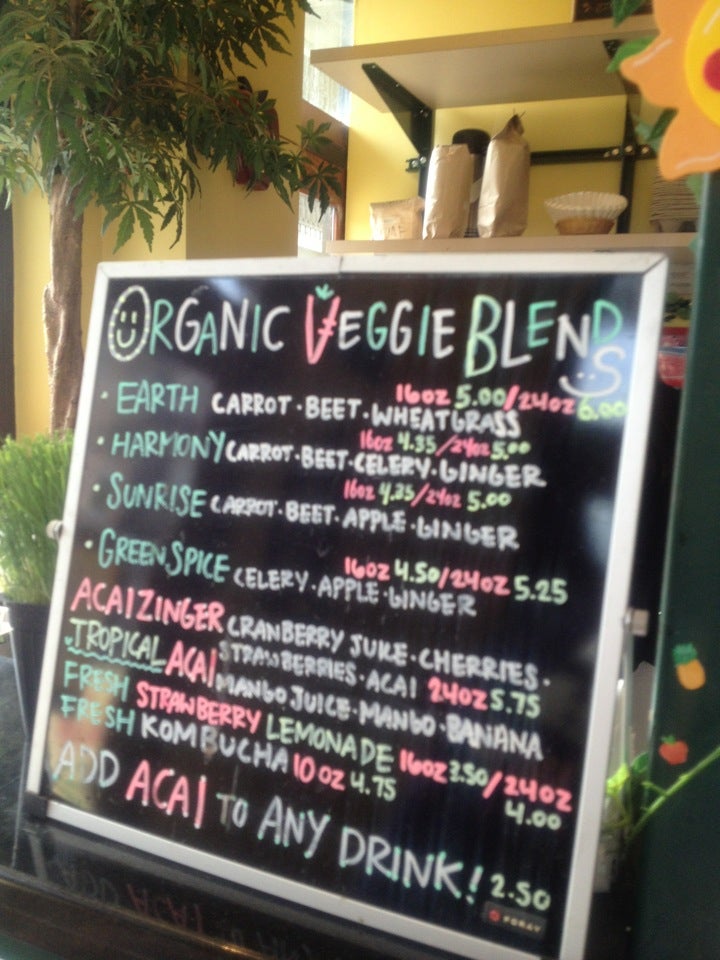 ORGANIC VEGGIE BLENDS
16oz 5.00/24oz 6.00
• EARTH CARROT • BEET • WHEATGRASS
16oz 4.35/24oz 5.00
• HARMONY CARROT • BEET • CELERY • GINGER
16oz 4.25/24oz 5.00
• SUNRISE CARROT • BEET • APPLE • GINGER
16oz 4.50/24oz 5.25
• GREEN SPICE CELERY • APPLE • GINGER
ACAI ZINGER CRANBERRY JUICE • CHERRIES •
STRAWBERRIES • ACAI 24oz 5.75
TROPICAL ACAI MANGO JUICE • MANGO • BANANA
FRESH STRAWBERRY LEMONADE 16oz 3.50/24oz 4.00
FRESH KOMBUCHA 10oz 4.75
ADD ACAI TO ANY DRINK! 2.50
FORAY